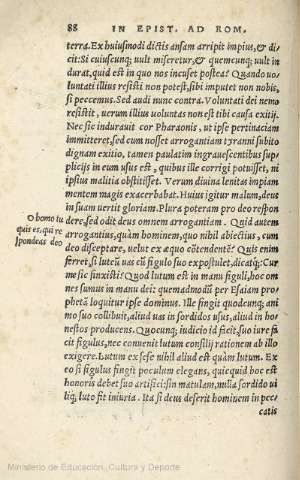 88 IN EPIST. AD ROM.
terra. Ex huiusmodi dictis ansam arripit impius, & di
cit: Si cuiuscunq; uult miseretur, & quemcunq; uult in
durat, quid est in quo nos incuset postea? Quando uo=
luntati illius resisti non potest, sibi imputet non nobis,
si peccemus. Sed audi nunc contra. Voluntati dei nemo
resistit, uerum illius uoluntas non est tibi causa exitij.
Nec sic indurauit cor Pharaonis, ut ipse pertinaciam
immitteret, sed cum nosset arrogantiam tyranni subito
dignam exitio, tamen paulatim ingrauescentibus sup=
plicijs in eum usus est, quibus ille corrigi potuisset, ni
ipsius malitia obstitisset. Verum diuina lenitas impiam
mentem magis exacerbabat. Huius igitur malum, deus
in suam uertit gloriam. Plura poteram pro deo respon
O homo tu
quis es, qui re
spondeas deo
dere, sed odit deus omnem arrogantiam. Quid autem
arrogantius, quàm hominem, quo nihil abiectius, cum
deo disceptare, uelut ex æquo cõtendentẽ? Quis enim
ferret, si luteũ uas cũ figulo suo expostulet, dicatq́;: Cur
me sic finxisti? Quod lutum est in manu figuli, hoc om
nes sumus in manu dei: quemadmodũ per Esaiam pro=
phetã loquitur ipse dominus. Ille fingit quodcunq; ani
mo suo collibuit, aliud uas in sordidos usus, aliud in ho=
nestos producens. Quocunq; iudicio id facit, suo iure fa
cit figulus, nec conuenit lutum consilij rationem ab illo
exigere. Lutum ex sese nihil aliud est quàm lutum. Ex
eo si figulus fingit poculum elegans, quicquid hoc est
honoris debet suo artifici: sin matulam, nulla sordido ui
liq́; luto fit iniuria. Ita si deus deserit hominem in pec=
catis
Ministerio de Educación, Cultura y Deporte